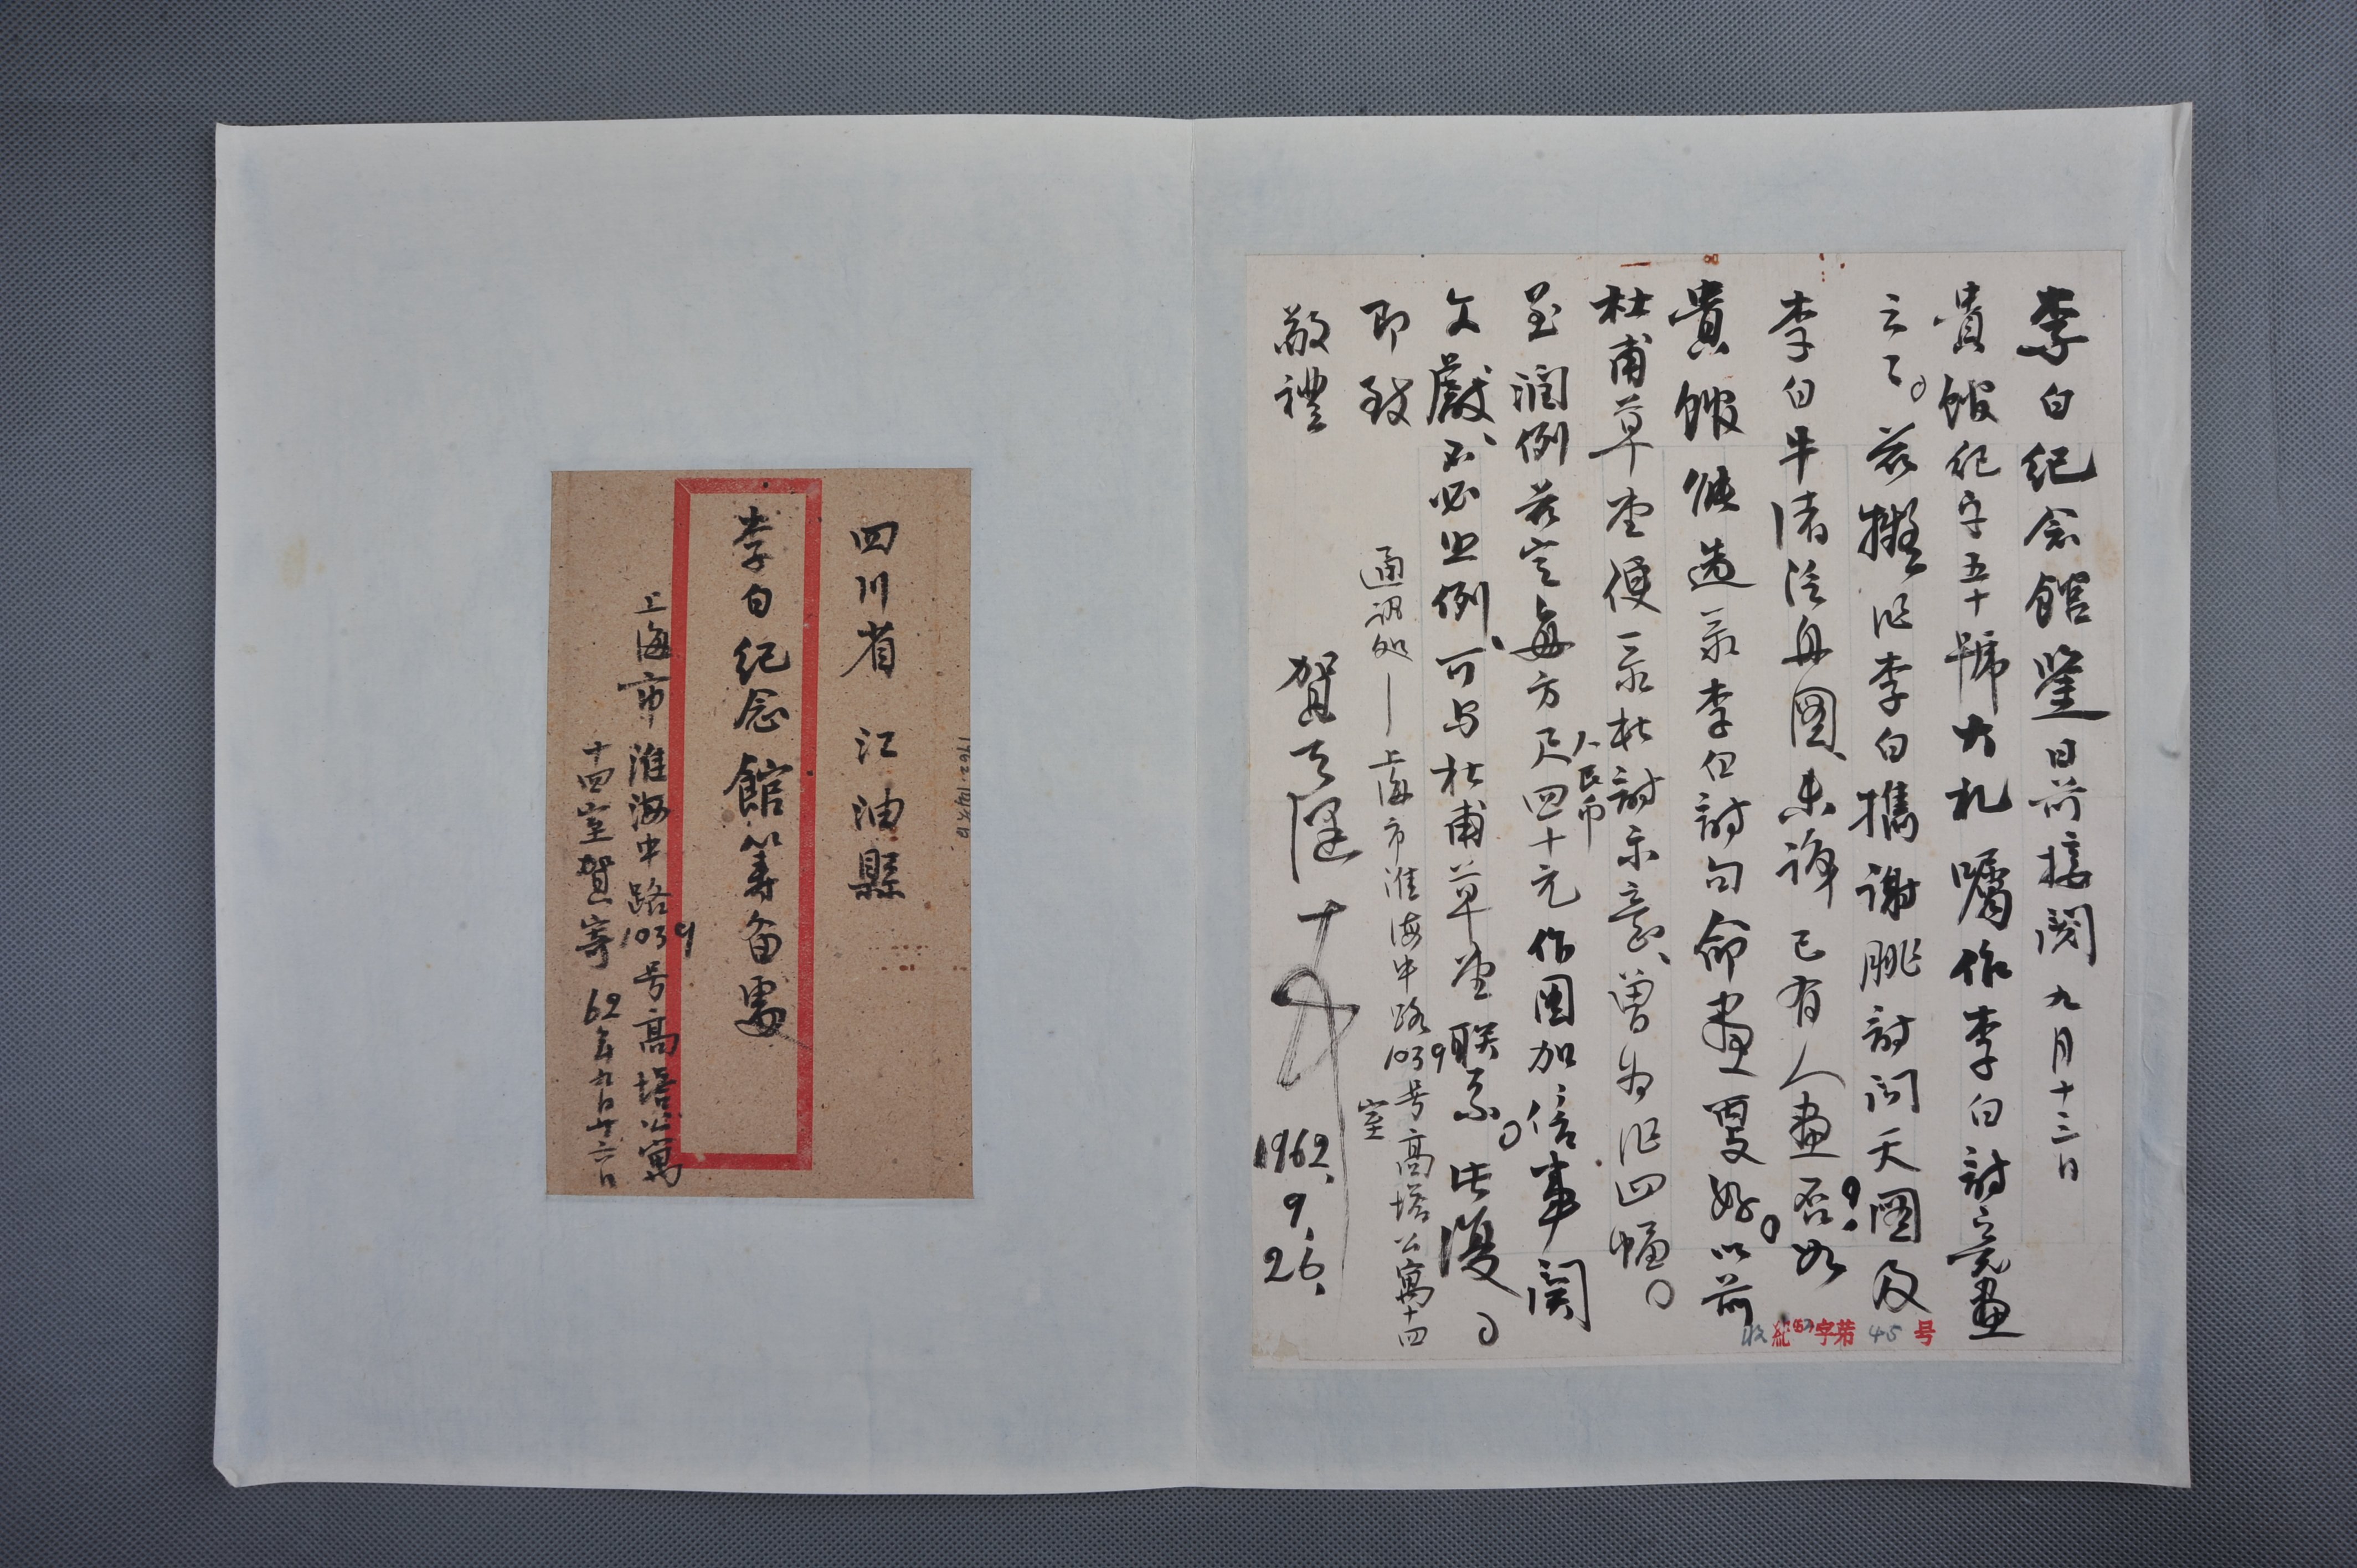 李白纪念館鑒日前接閱九月十三日
貴館纪字五十號大札囑作李白詩意畫
云云。兹擬作李白攜謝脁詩问天圖及
李白牛渚泛舟圖、未諱已有人畫否？如
貴館候选一张李白詩句命畫更好。以前
杜甫草堂便一张杜詩示意、曾为作四幅。
至润例兹定每方尺人民币四十元作图加倍事関
文獻、不必照例、可与杜甫草堂联系。此復。
即致
敬禮
賀天健
1962.9.26.
通訊处—上海市淮海中路1039号高塔公寓十四
室
收紀(62)字第45号
四川省 江油縣
李白纪念館籌备處
上海市淮海中路1039号高塔公寓
十四室賀寄 62年九月廿六日